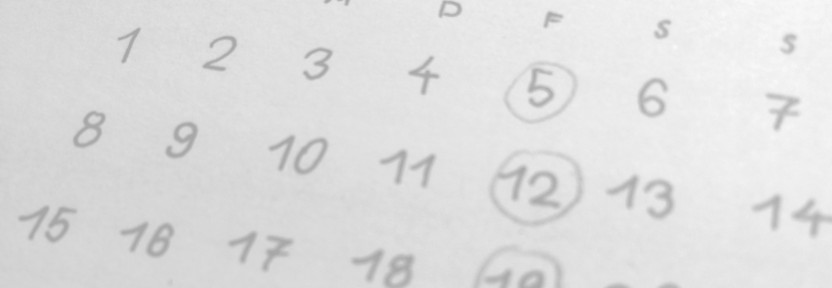 D F S S
1 2 3 4 5 6 7
8 9 10 11 12 13 14
15 16 17 18 19